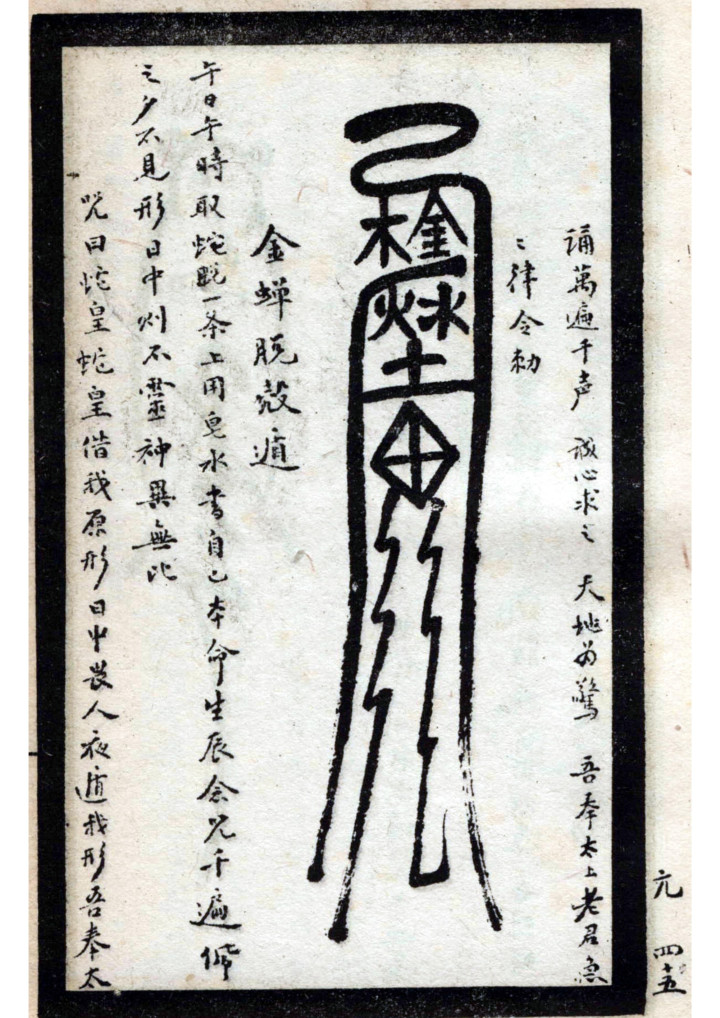 誦萬遍千声 誠心求之 天地为驚 吾奉太上老君急
〻律令勅
金木
水火
土
金蝉脱殼遁
午日午時取蛇脱一条上用皂水書自己本命生辰念咒千遍俻
之夕不見形日中则不靈神異無比
咒曰蛇皇蛇皇借我原形日中畏人夜遁我形吾奉太
亢 四十五